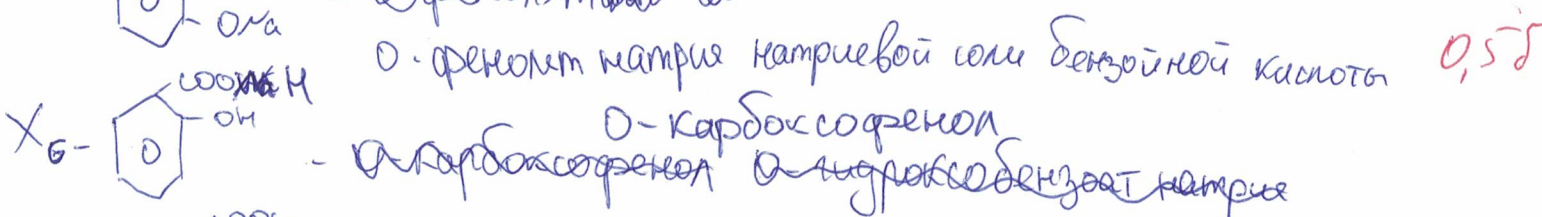 ONa
О-фенолят натрия натриевой соли бензойной кислоты 0,5б
COOH
X6 - OH
О-карбоксофенол
- О-карбоксофенол О-гидроксобензоат натрия